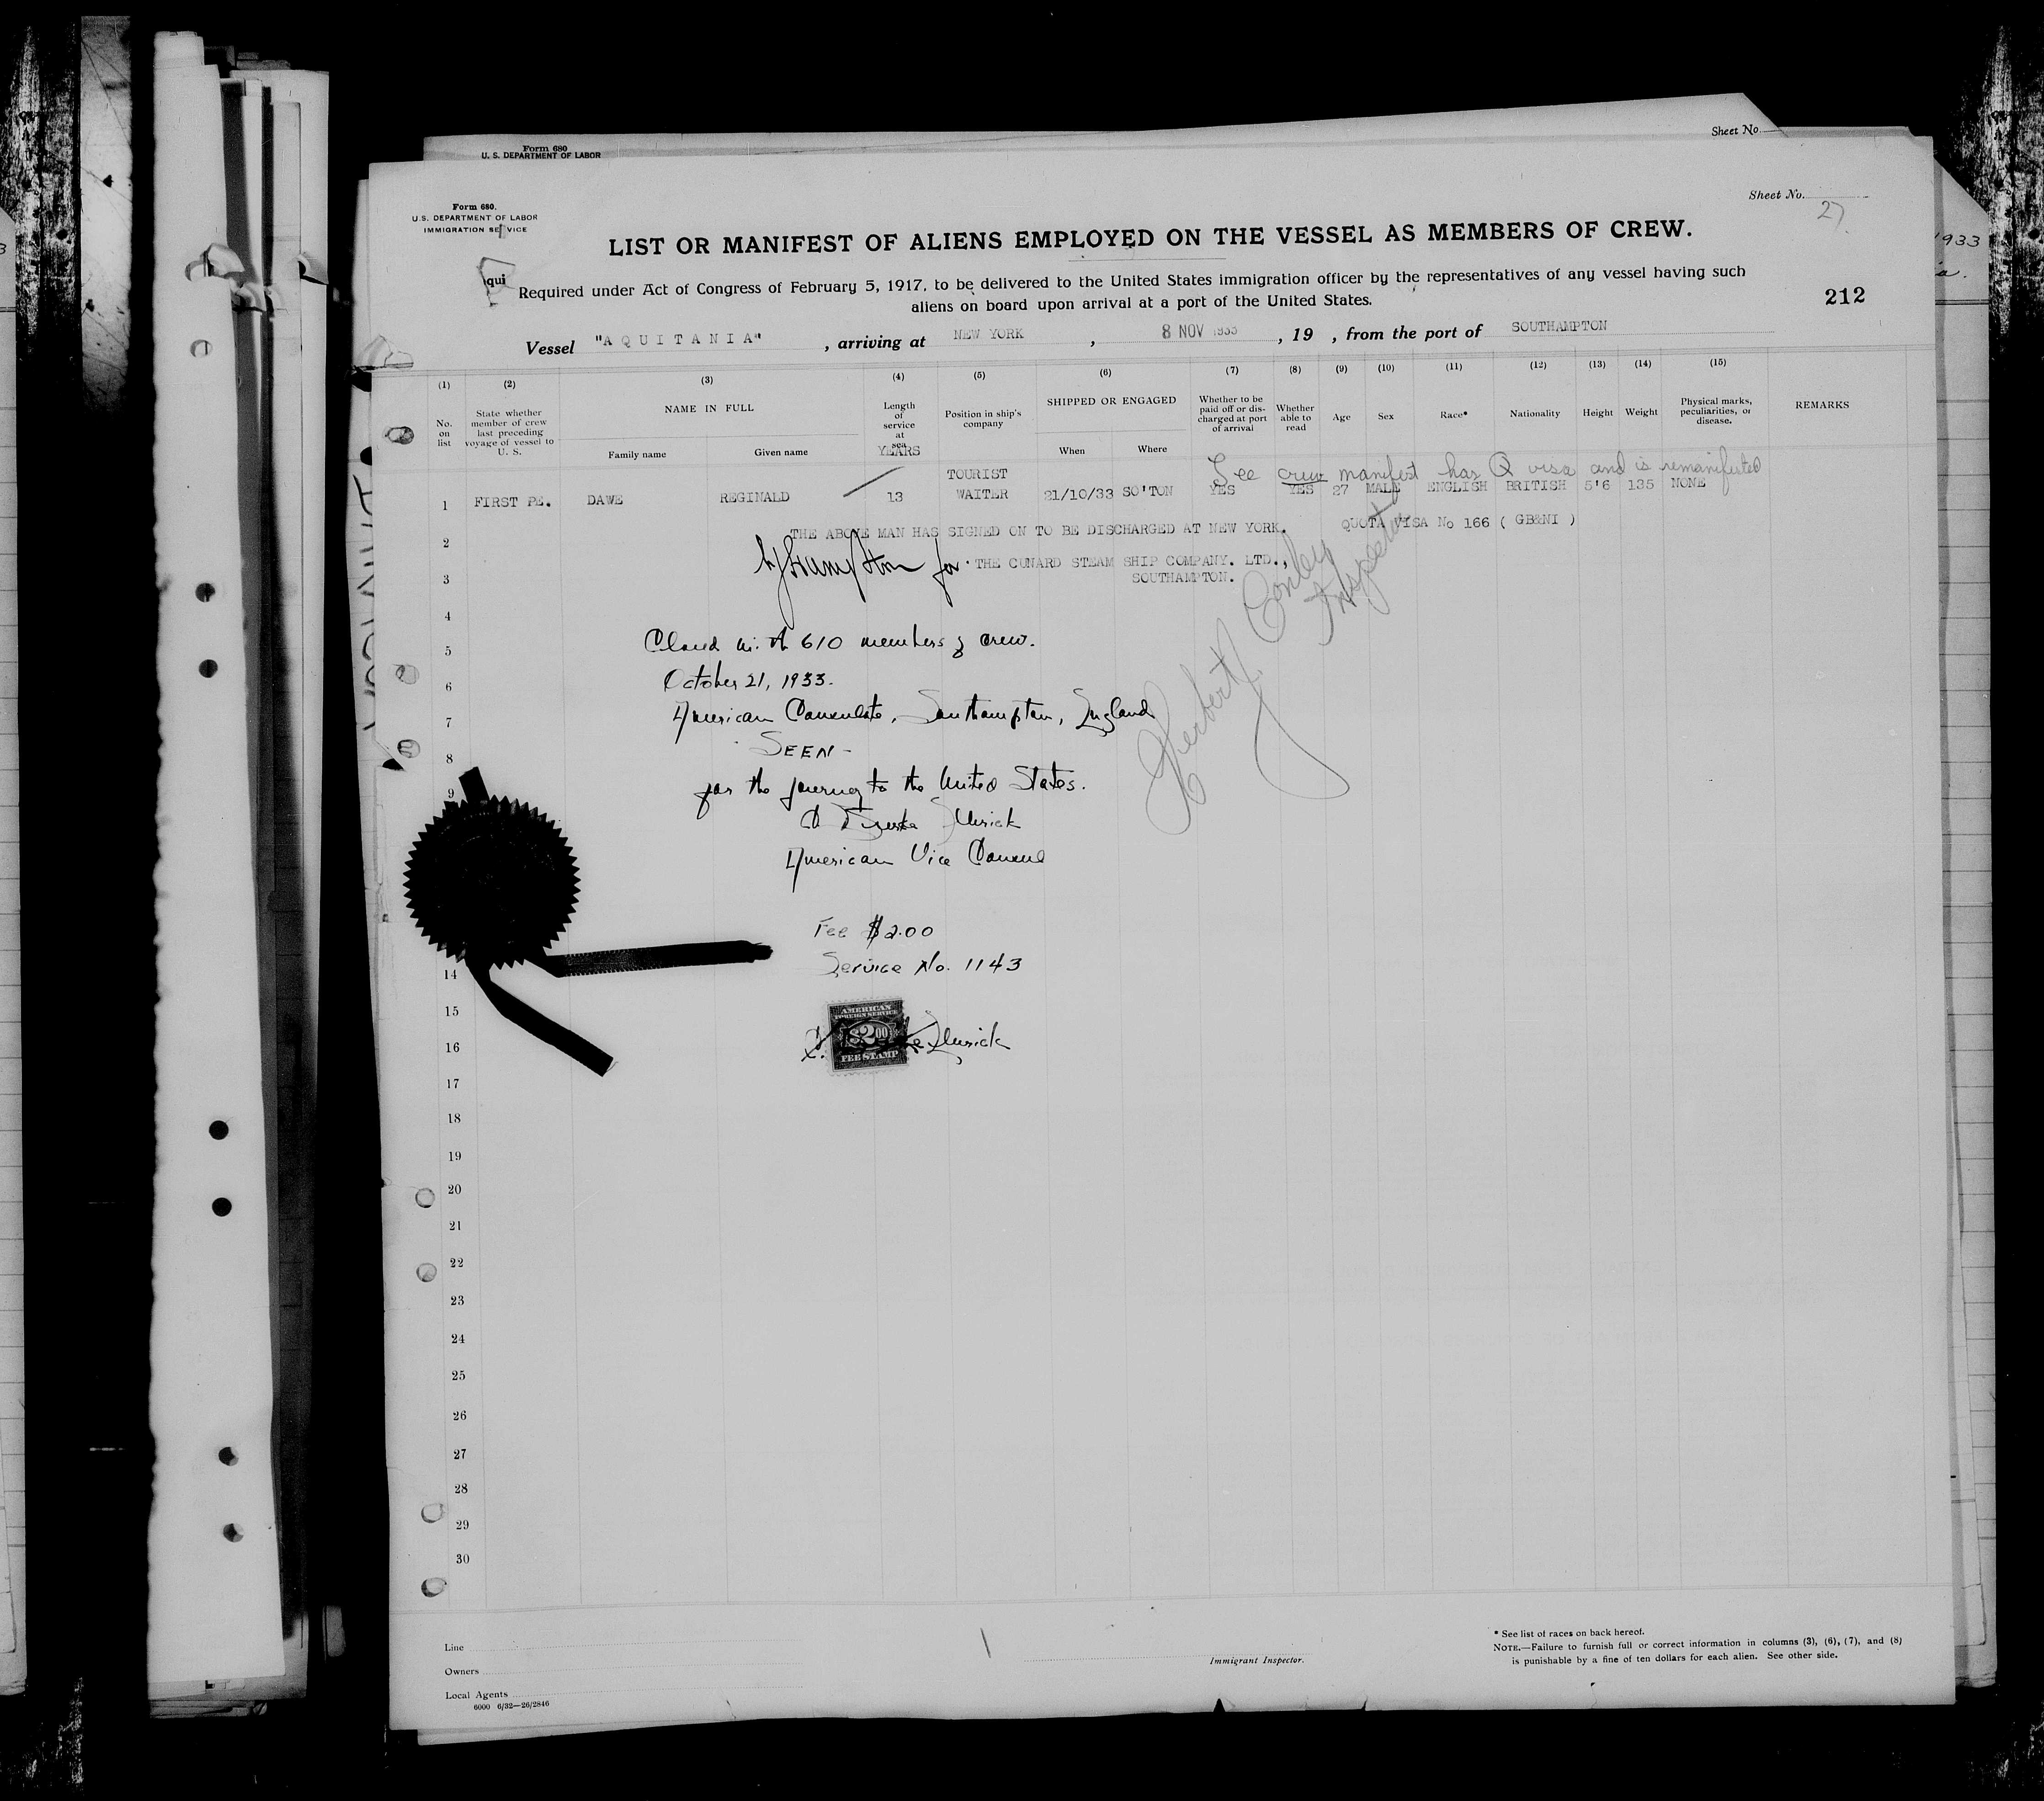 Form 680
U. S. DEPARTMENT OF LABOR
Sheet No.
Form 680.
U.S. DEPARTMENT OF LABOR
IMMIGRATION SERVICE
Sheet No.
27
LIST OR MANIFEST OF ALIENS EMPLOYED ON THE VESSEL AS MEMBERS OF CREW.
qui
Required under Act of Congress of February 5, 1917, to be delivered to the United States immigration officer by the representatives of any vessel having such
aliens on board upon arrival at a port of the United States.
212
1933
Vessel "AQUITANIA", arriving at NEW YORK, 8 NOV 1933, 19 , from the port of SOUTHAMPTON
(1) (2) (3) (4) (5) (6) (7) (8) (9) (10) (11) (12) (13) (14) (15)
No. on list
State whether member of crew last preceding voyage of vessel to U. S.
NAME IN FULL
Family name Given name
Length of service at sea
YEARS
Position in ship's company
SHIPPED OR ENGAGED
When Where
Whether to be paid off or discharged at port of arrival
Whether able to read
Age
Sex
Race*
Nationality
Height
Weight
Physical marks, peculiarities, or disease.
REMARKS
See crew manifest has Q visa and is remanifested
TOURIST
1 FIRST PE. DAWE REGINALD 13 WAITER 21/10/33 SO'TON YES YES 27 MALE ENGLISH BRITISH 5'6 135 NONE
THE ABOVE MAN HAS SIGNED ON TO BE DISCHARGED AT NEW YORK. QUOTA VISA No 166 ( GB&NI )
2
for THE CUNARD STEAM SHIP COMPANY. LTD.,
3
SOUTHAMPTON.
Herbert J. Conley
Inspector
4
5 610 members of crew.
6 October 21, 1933.
7 American Consulate, Southampton, England
8 SEEN -
9 for the journey to the United States.
American Vice Consul
Fee $2.00
14 Service No. 1143
15
AMERICAN
FOREIGN SERVICE
$2.00
FEE STAMP
16
17
18
19
20
21
22
23
24
25
26
27
28
29
30
Line
Owners
Local Agents
6000 6/32—26/2846
Immigrant Inspector.
* See list of races on back hereof.
NOTE.—Failure to furnish full or correct information in columns (3), (6), (7), and (8)
is punishable by a fine of ten dollars for each alien. See other side.